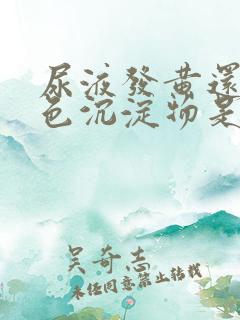 尿液發黃還
色沉淀物是
吴奇志
未经同意禁止转载